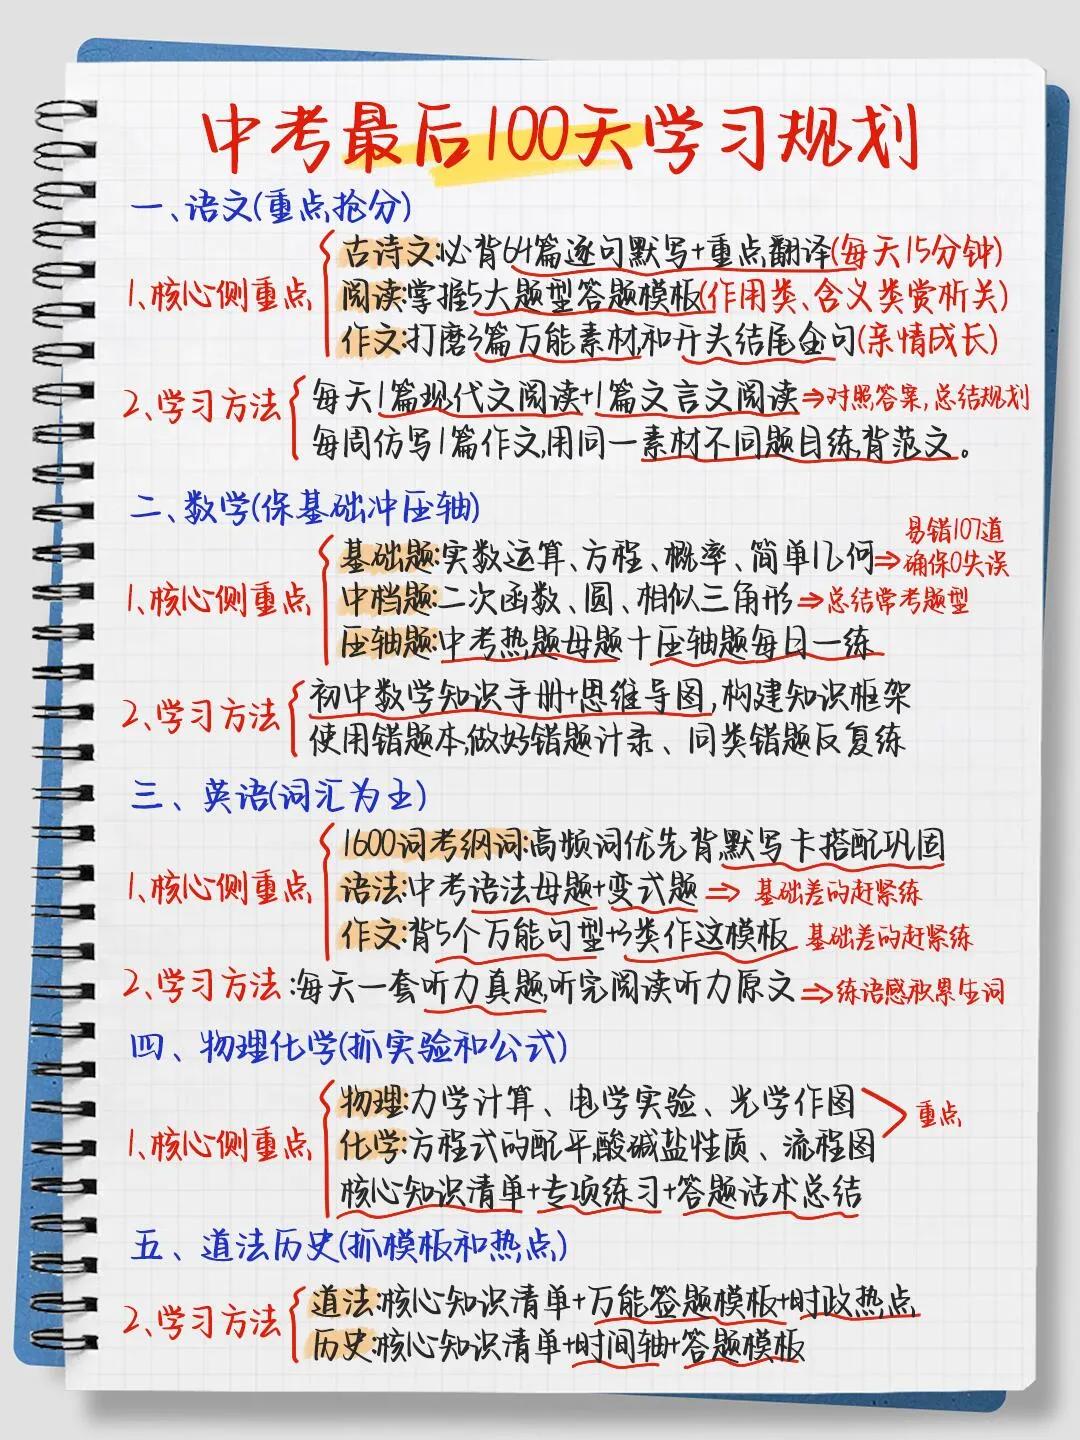 中考最后100天学习规划
一、语文(重点抢分)
1、核心侧重点
古诗文:必背64篇逐句默写+重点翻译(每天15分钟)
阅读:掌握5大题型答题模板(作用类、含义类赏析关)
作文:打磨3篇万能素材,和开头结尾金句(亲情成长)
2、学习方法
每天1篇现代文阅读+1篇文言文阅读⇒对照答案,总结规划
每周仿写1篇作文,用同一素材不同题目练,背范文。
二、数学(保基础冲压轴)
1、核心侧重点
基础题:实数运算、方程、概率、简单几何⇒易错107道
确保0失误
中档题:二次函数、圆、相似三角形⇒总结常考题型
压轴题:中考热题母题十压轴题每日一练
2、学习方法
初中数学知识手册+思维导图,构建知识框架
使用错题本,做好错题计录、同类错题反复练
三、英语(词汇为主)
1、核心侧重点
1600词考纲词:高频词优先背,默写卡搭配巩固
语法:中考语法母题+变式题⇒基础差的赶紧练
作文:背5个万能句型+3类作这模板 基础差的赶紧练
2、学习方法:每天一套听力真题,听完阅读听力原文⇒练语感积累生词
四、物理化学(抓实验和公式)
1、核心侧重点
物理:力学计算、电学实验、光学作图
化学:方程式的配平,酸碱盐性质、流程图
重点
核心知识清单+专项练习+答题话术总结
五、道法历史(抓模板和热点)
2、学习方法
道法:核心知识清单+万能签题模板+时政热点
历史:核心知识清单+时间轴+答题模板